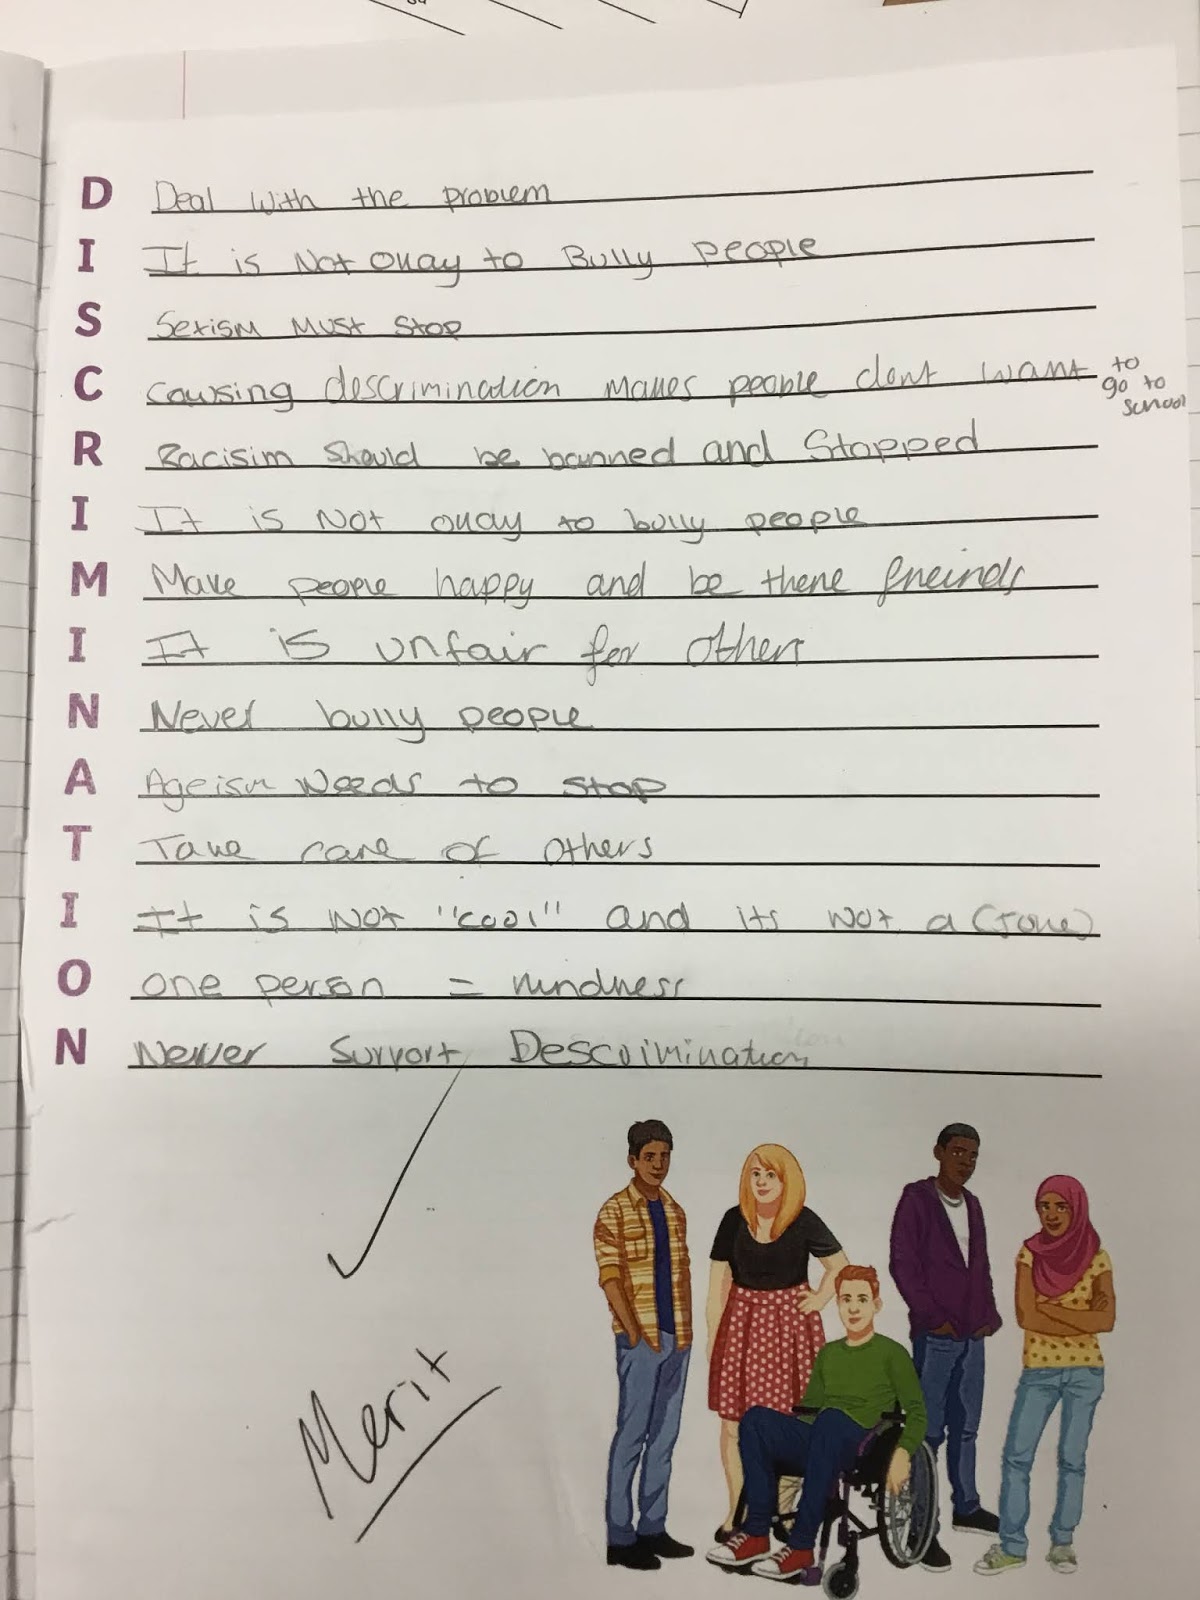 D Deal with the problem
I It is Not okay to Bully people
S Sexism Must Stop
C Causing descrimination makes people dont want to go to school
R Racisim Should be banned and Stopped
I It is Not okay to bully people
M Make people happy and be there freinds
I It is unfair for others
N Never bully people
A Ageism Needs to stop
T Take care of others
I It is Not "cool" and its Not a (Joke)
O one person = kindness
N Never Support Descrimination
Merit